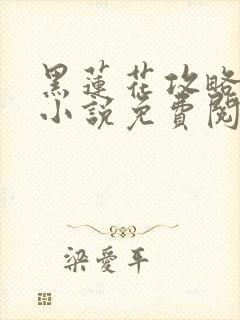 黑蓮花攻略
小說免費閱
梁愛平